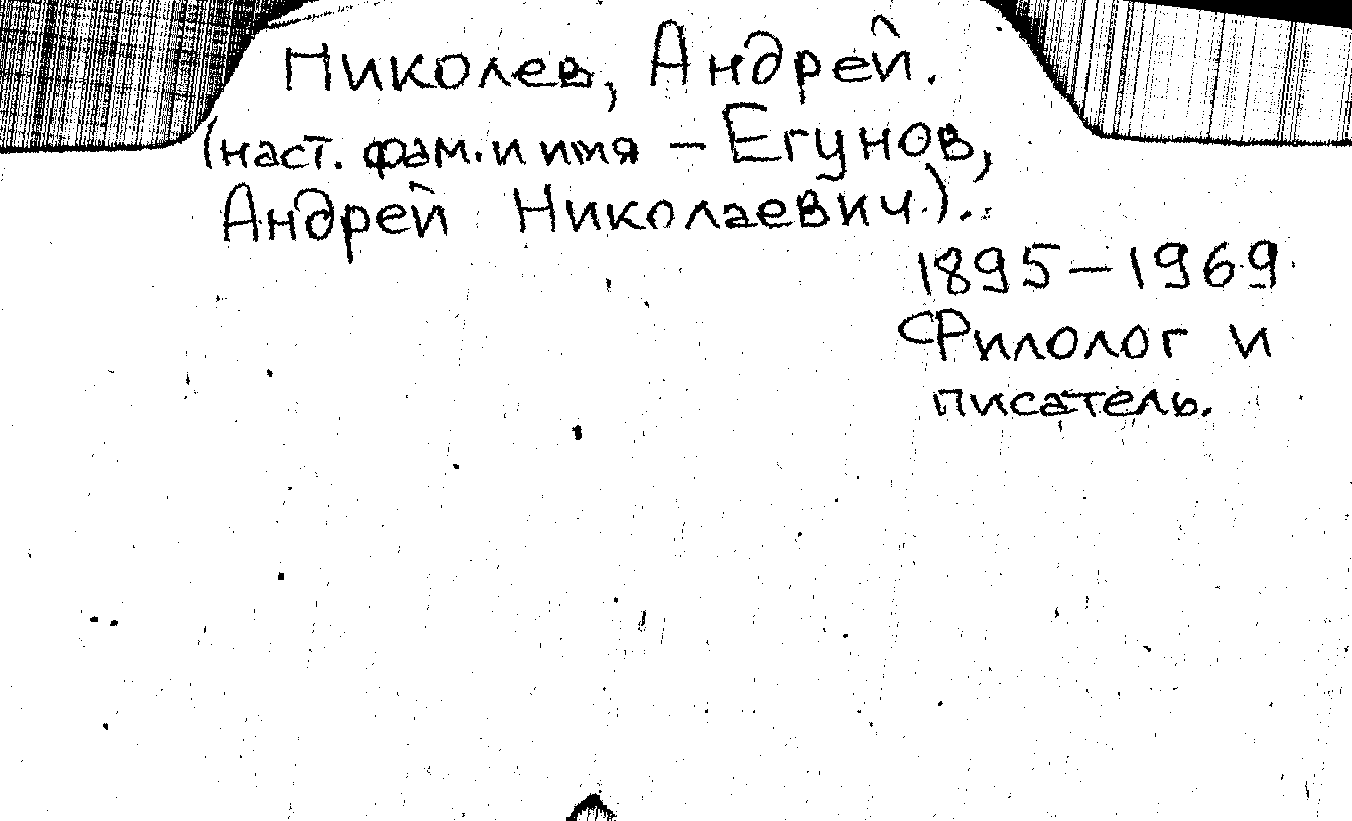 Николев, Андрей.
(наст. фам. и имя – Егунов,
Андрей Николаевич.).
1895–1969
Филолог и
писатель.